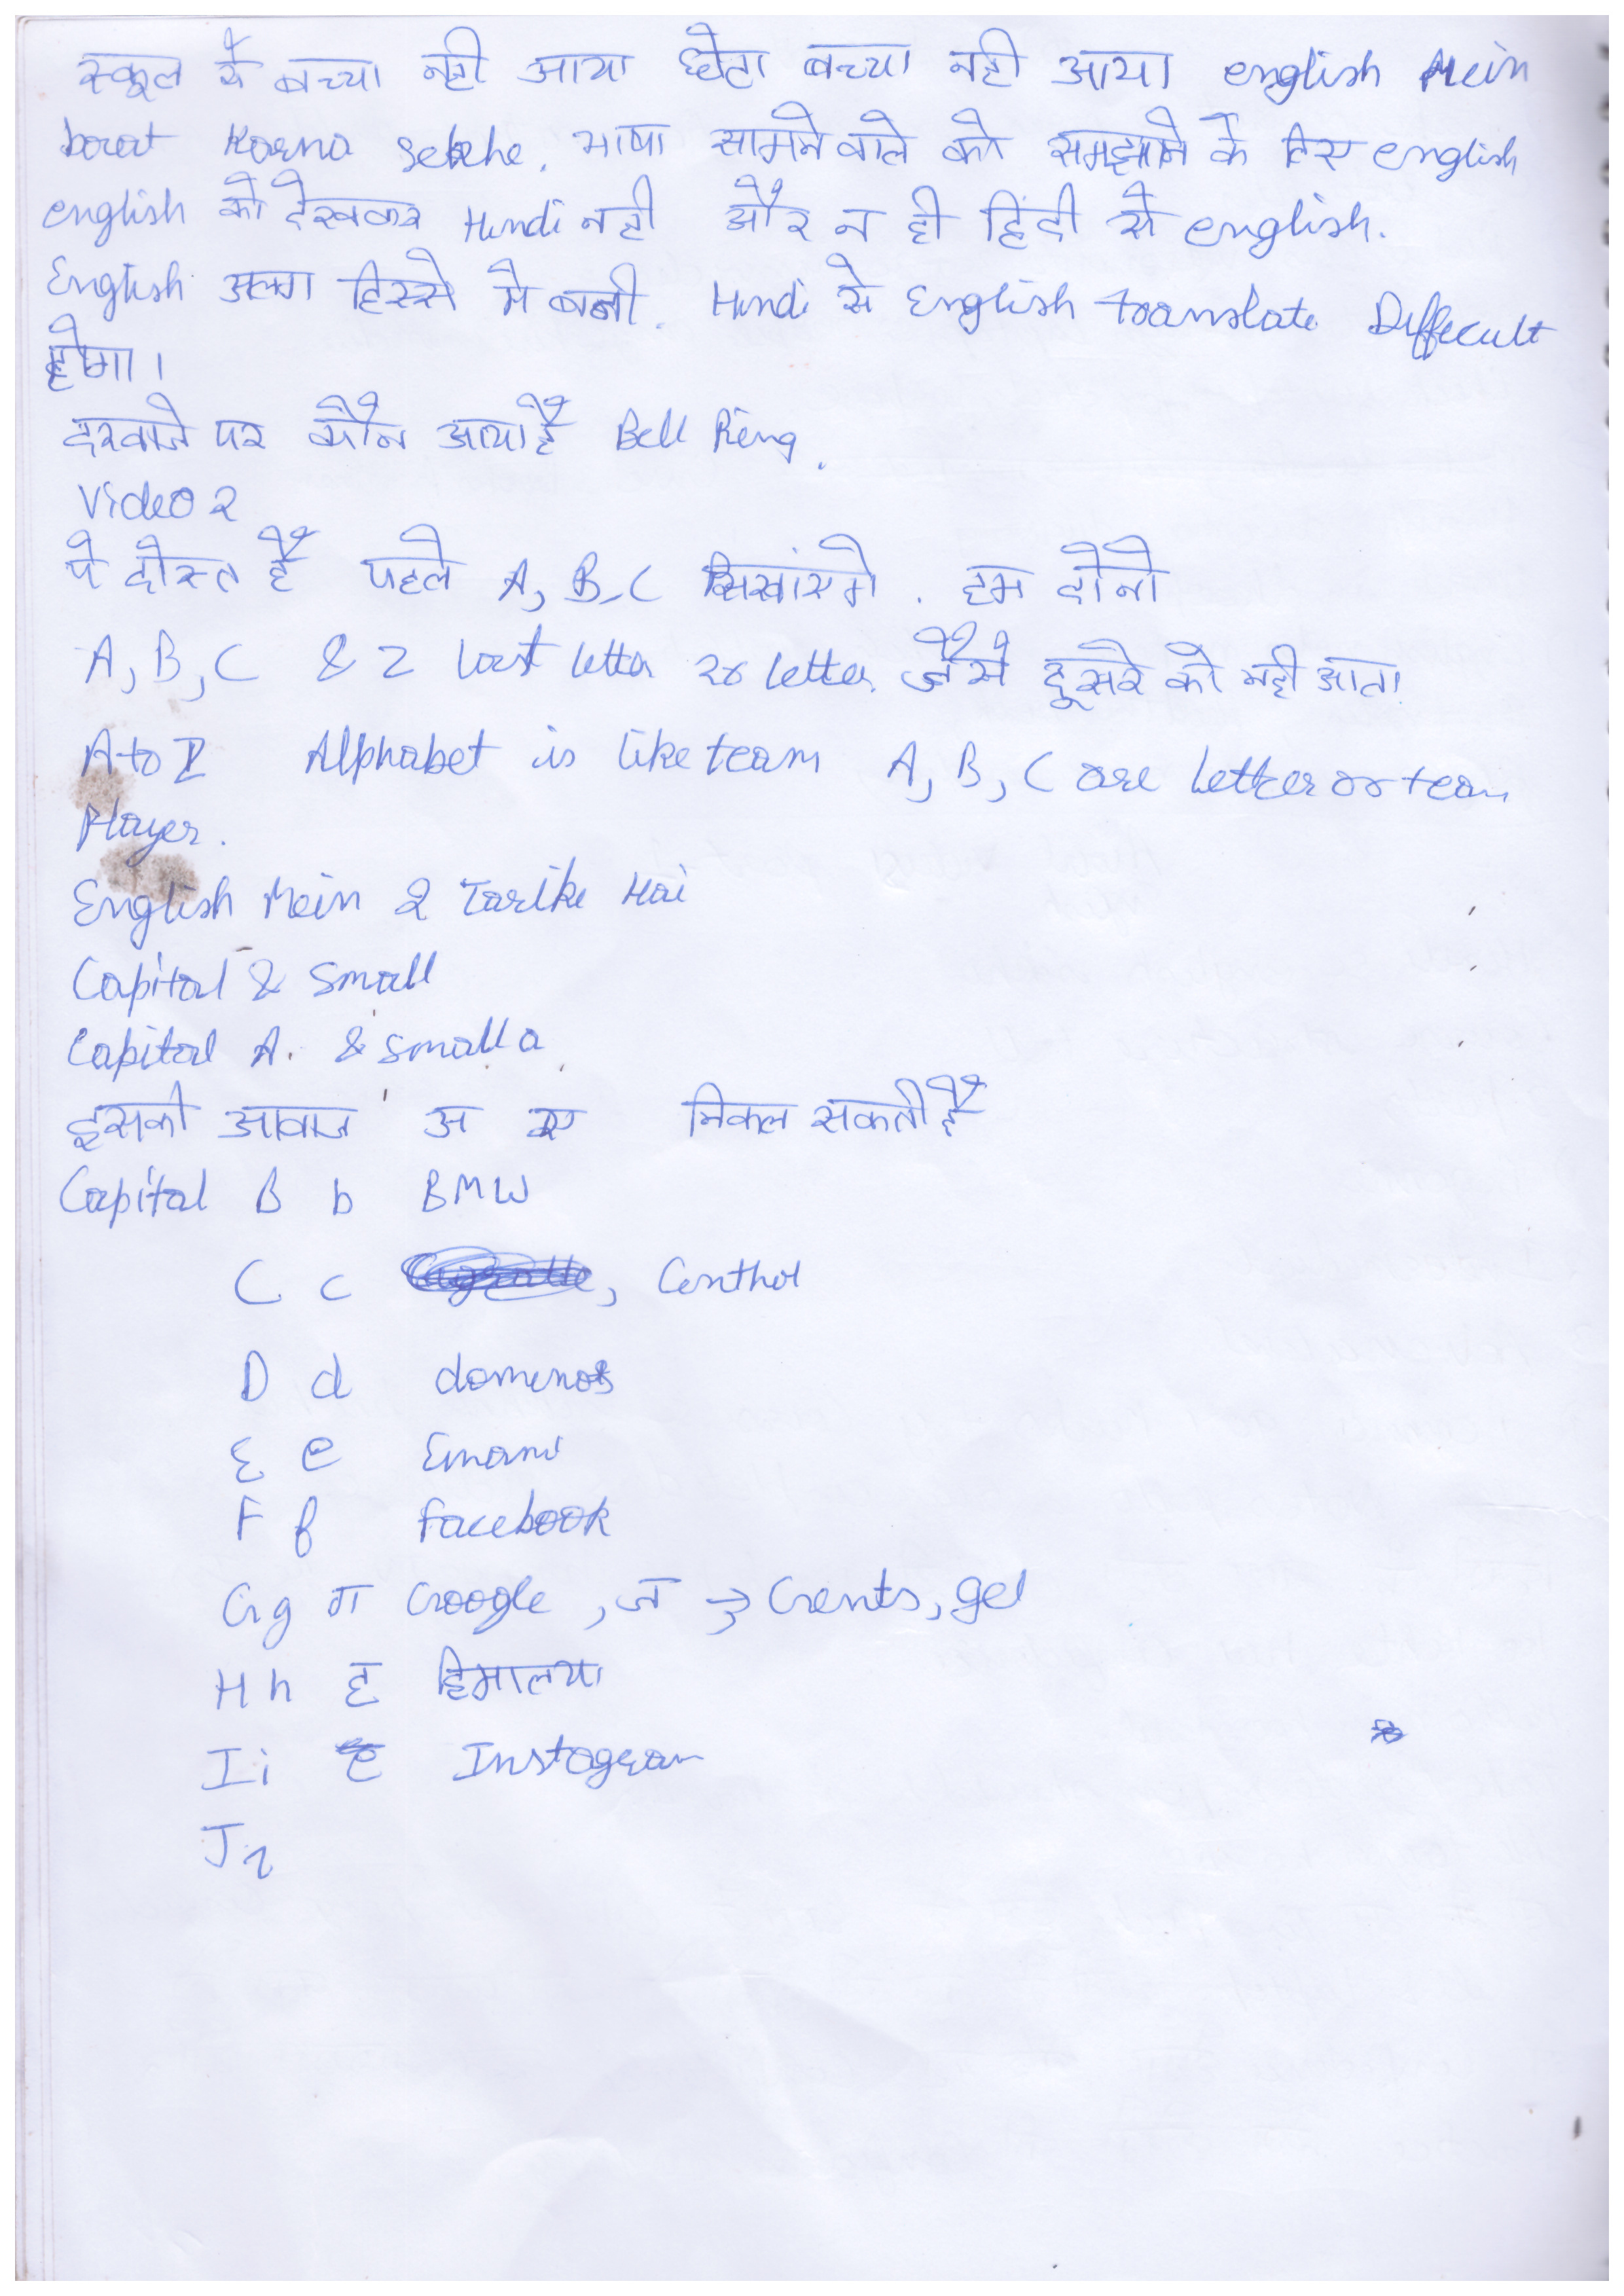 स्कूल से बच्चा नही आया छोटा बच्चा नही आया english Mein
baat Karna sekhe. भाषा सामने वाले को समझाने के लिए english
english को देखकर Hindi नही और न ही हिंदी से english.
English अलग हिस्से मे बनी. Hindi से English translate Deffecult
होगा।
दरवाजे पर कौन आया है Bell Ring.
Video 2
ये दोस्त है पहले A, B, C सिखांएगे. हम दोनो
A, B, C & Z last letter 26 letter जैसे दूसरे को नही आता.
A to Z Alphabet is like team A, B, C are letter or team
Player.
English Mein 2 Tarike Hai
Capital & Small
Capital A. & small a
इसकी आवाज अ ए निकल सकती है
Capital B b BMW
C c , Centhol
D d domenos
E e Emami
F f facebook
G g ग Google , ज → Gents, gel
H h ह हिमालया
I i Instagram
J